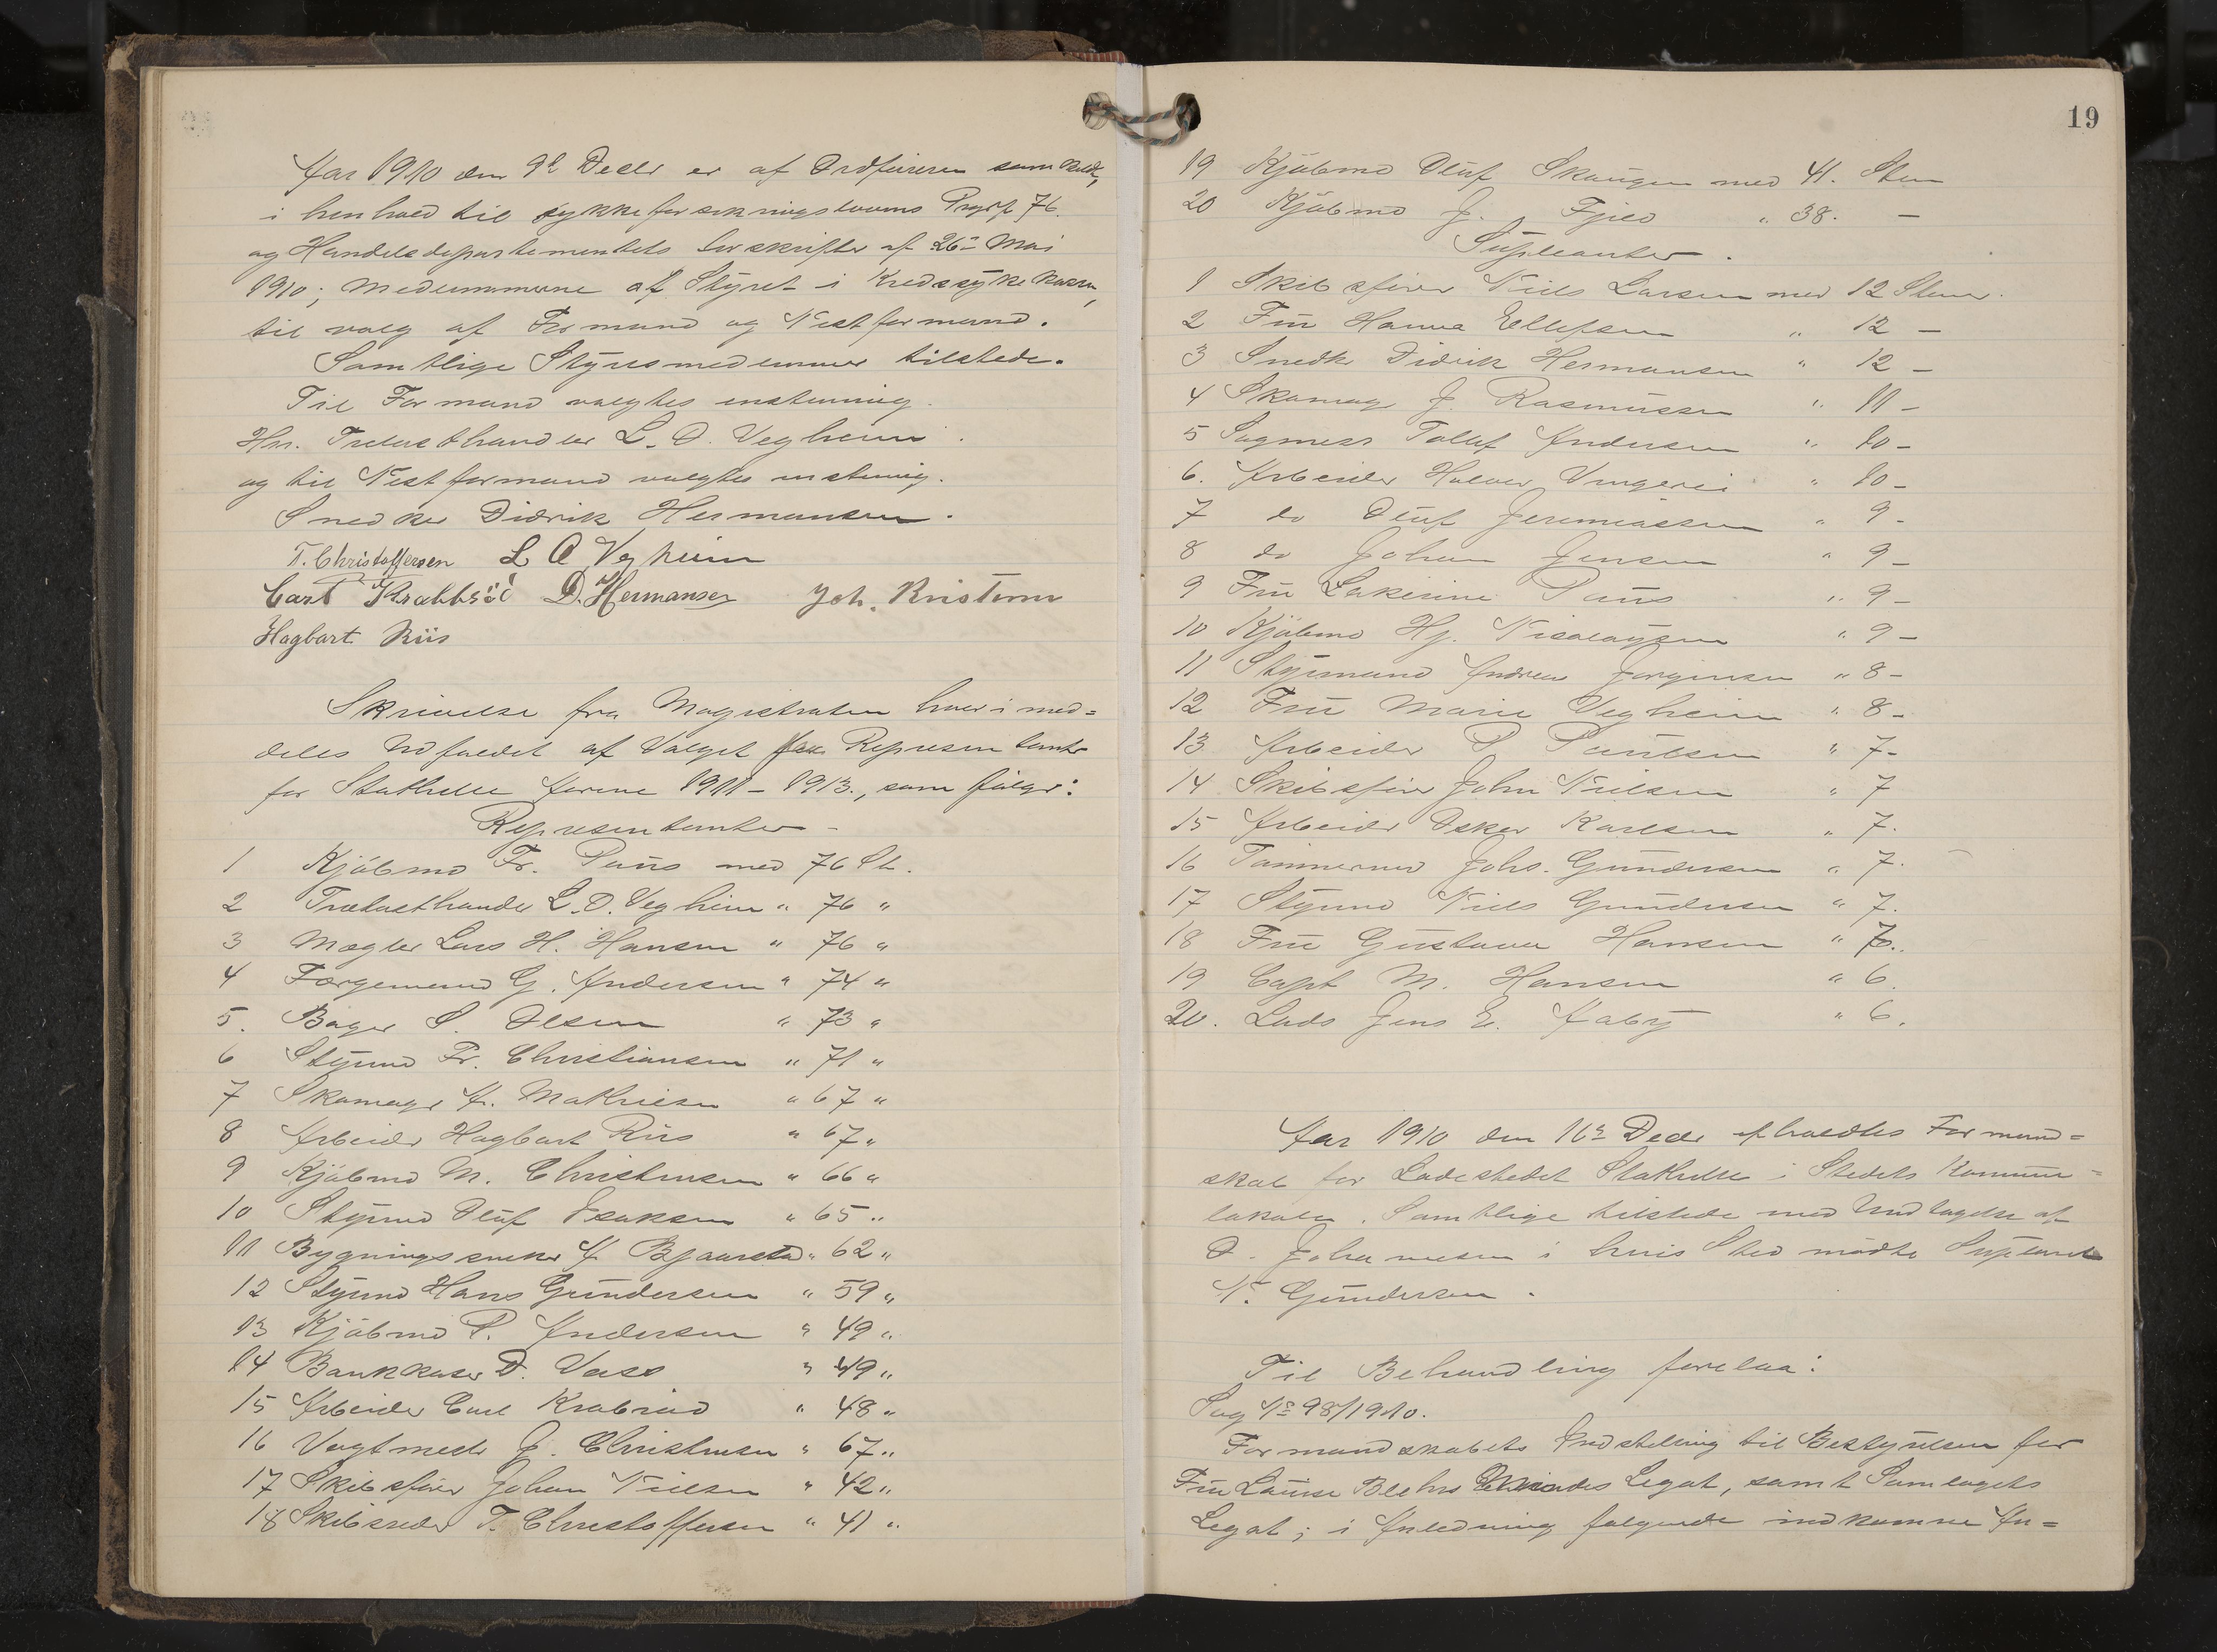 Aar 1910 den 9d Decbr er af Ordføreren sam kaldt,
i henhold til sykkeforsikringslovens Prgrf 76.
og Handelsdepartementets forskrifter af 26de Mai
1910; Medlemmerne af Styret i Kredssykekassen,
til valg af Formand og Nestformand.
Samtlige Styresmedlemmer tilstede.
Til Formand valgtes enstemmig.
Hrr. Trelasthandler L. O. Vegheim.
og til Nestformand valgtes enstemig.
Snedker Didrik Hermansen.
T. Christoffersen L O Vegheim
Carl Krabbsöd D. Hermansen Joh. Kristensen
Hagbart Riis
Skrivelse fra Magistraten hvori med=
deles Udfaldet af Valget paa Representanter
for Stathelle Aarene 1911–1913., som følger:
Representanter –
1 Kjøbmd Fr. Paus med 76 St.
2 Trælasthandler L. O. Vegheim " 76 "
3 Mægler Lars H. Hansen " 76 "
4 Færgemand G. Andersen " 74 "
5. Bager S. Olsen " 73 "
6 Styrmd Fr. Christiansen " 71 "
7 Skomager A. Mathiesen " 67 "
8 Arbeider Hagbart Riis " 67 "
9 Kjøbmd M. Christensen " 66 "
10 Styrmd Oluf Isaksen " 65 "
11 Bygningssneker A. Bjaarstad " 62 "
12 Styrmd Hans Gundersen " 59 "
13 Kjøbmd P. Andersen " 49 "
14 Bankkaser D. Vass " 49 "
15 Arbeider Carl Krabsød " 48 "
16 Vagtmestr J. Christensen " 67 "
17 Skibsfører Johan Nielsen " 42 "
18 Skibsreder T. Christoffersen " 41 "
19
19 Kjøbmd Oluf Skaugen med 41. Stem
20 Kjøbmd J. Fjeld " 38. –
Supleanter.
1 Skibsfører Niels Larsen med 12 Stem.
2 Fru Hanna Ellefsen " 12 –
3 Snedk Didrik Hermansen " 12 –
4 Skomag J. Rasmussen " 11 –
5 Sagmestr Tollef Andersen " 10 –
6. Arbeider Halvor Ungerei " 10 –
7 do Oluf Jeremiassen " 9 –
8 do Johan Jensen " 9 –
9 Fru Lakirine Paus " 9 –
10 Kjøbmd Hj. Nicolaysen " 9 –
11 Styrmand Andreas Jørgensen " 8 –
12 Fru Marie Vegheim " 8 –
13 Arbeider P. Paulsen " 7 –
14 Skibsfører John Nielsen " 7
15 Arbeider Osker Karlsen " 7.
16 Tømmermd Johs. Gundersen " 7.
17 Styrmd Niels Gundersen " 7.
18 Fru Gustava Hansen " 7.
19 Capt M. Hansen " 6.
20. Lods Jens E. Aaby " 6.
Aar 1910 den 16de Decbr afholdtes Formand=
skab for Ladestedet Stathelle i Stedets Kommune=
lokale. Samtlige tilstede med Undtagelse af
O. Johannesen i hvis Sted mødte Supleant
N. Gundersen.
Til Behandling forelaa:
Sag No 98/1910.
Formandskabets Indstilling til Bestyrelsen for
Fru Louise Blehrs Legat, samt Samlagets
Legat; i Anledning følgende indkomne An=